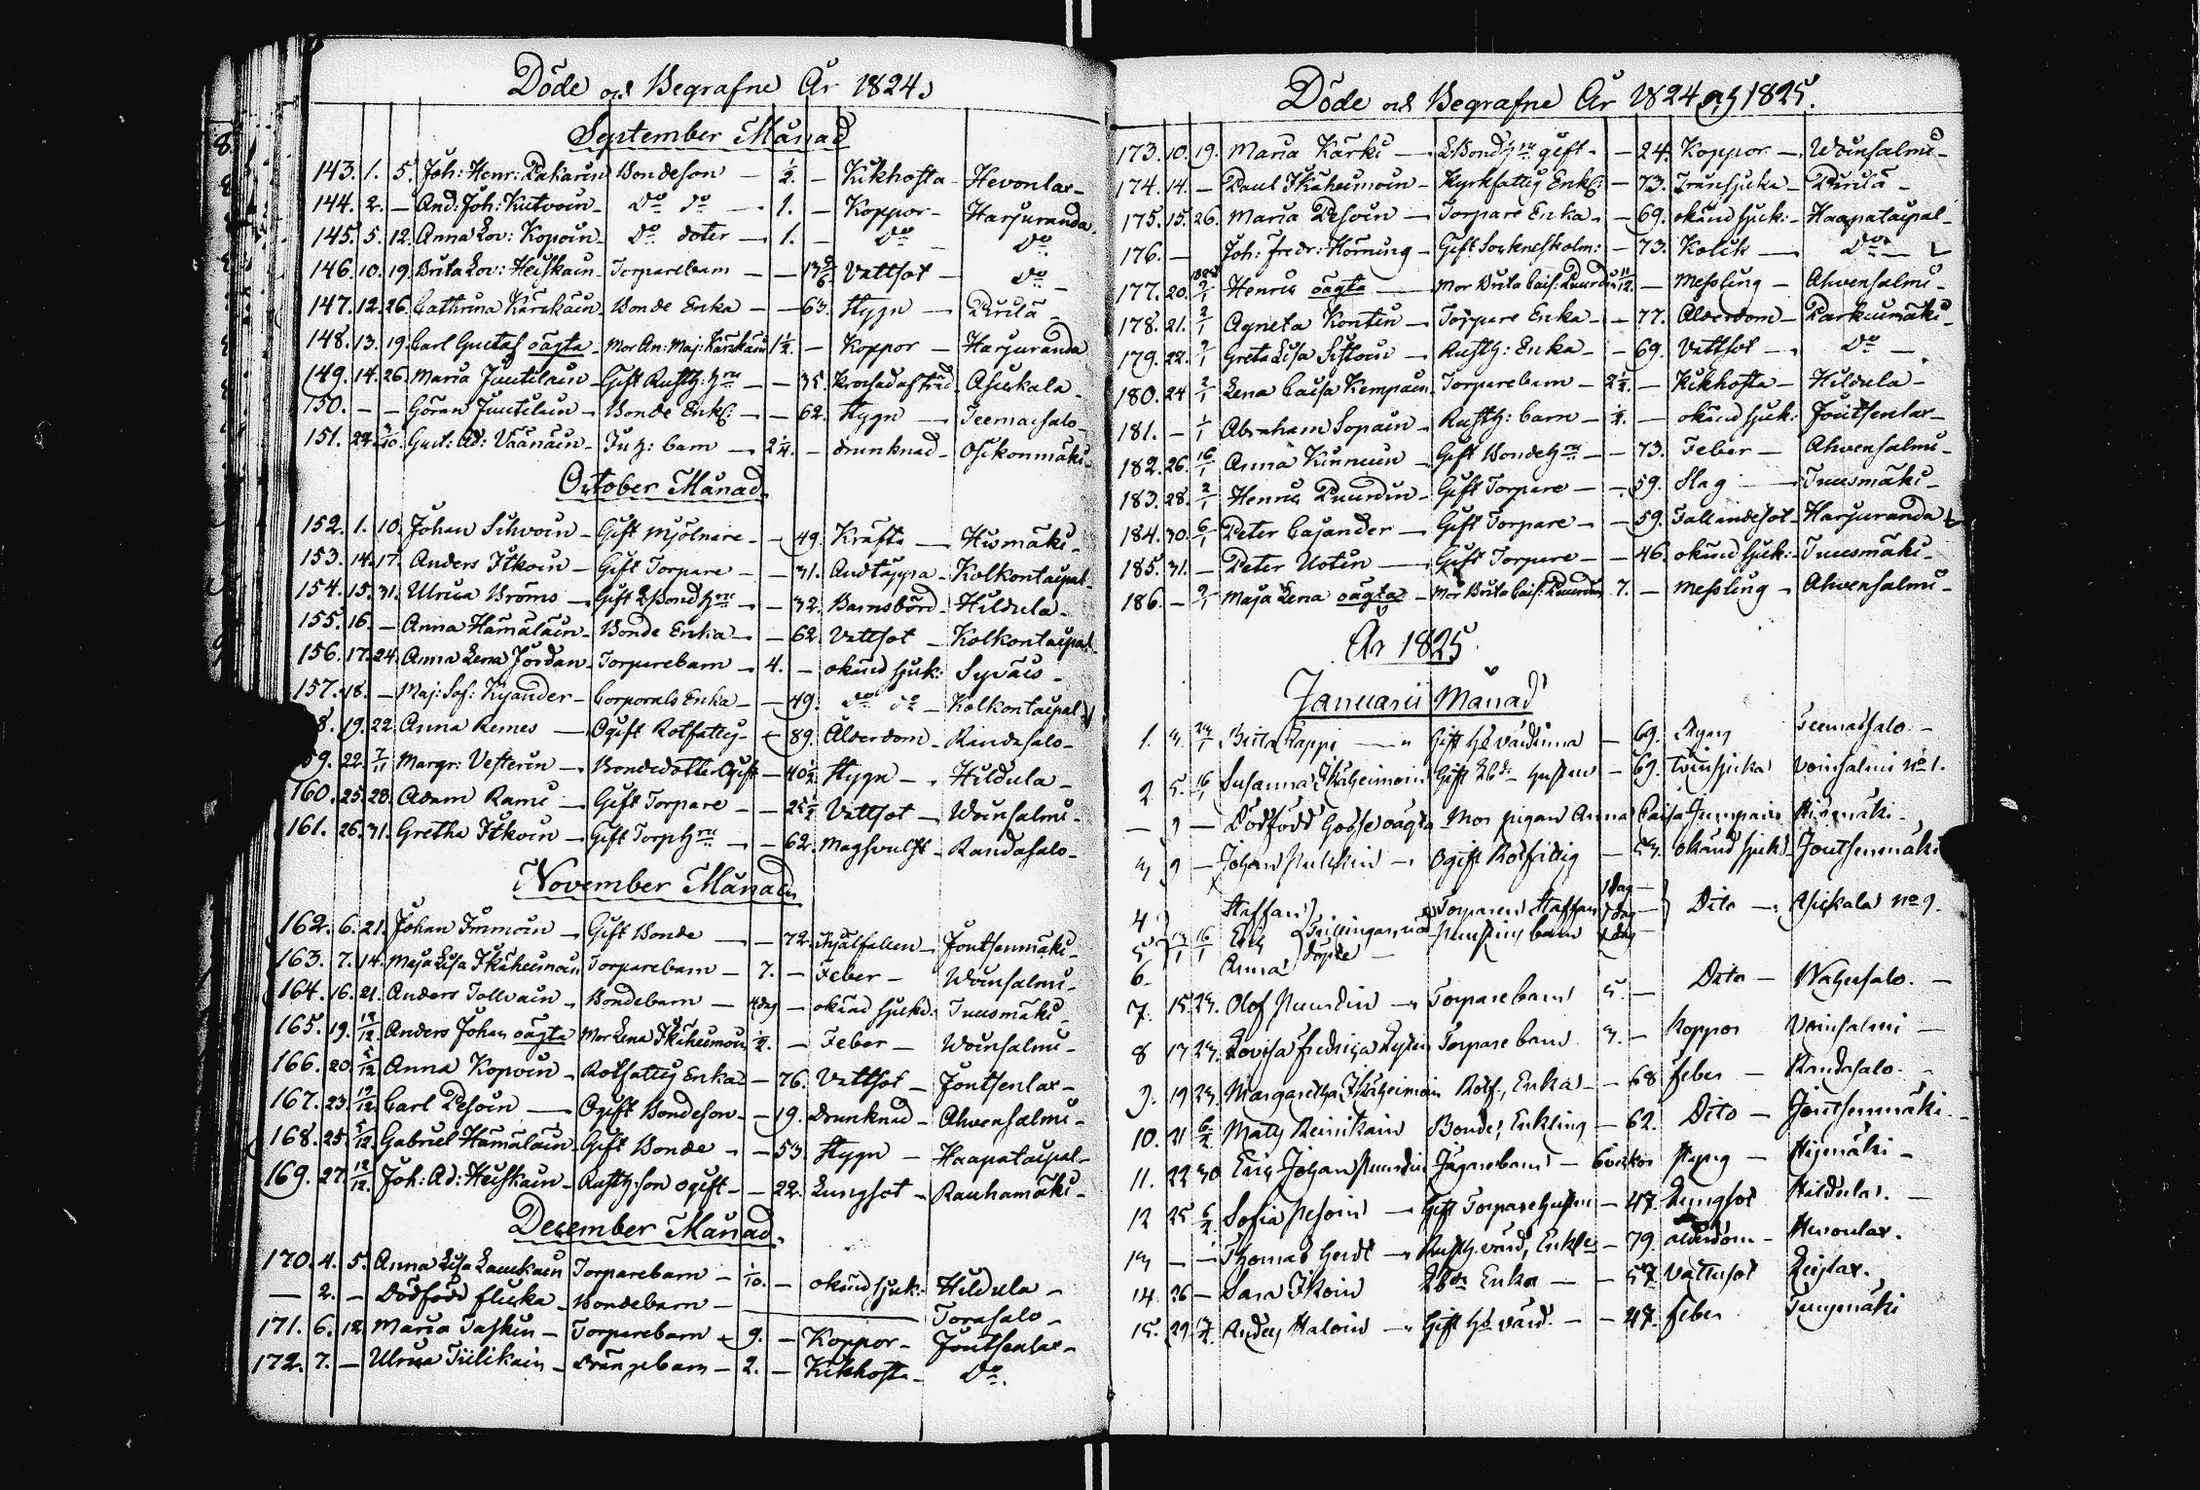 Döde och Begrafne År 1824.
September Månad
143. 1. 5. Joh: Henr: Pakarin Bondeson — ½. — Kikhosta — Hevonlax —
144. 2. — And: Joh: Kutvoin — do do — 1. — Koppor — Harjuranda.
145. 5. 12. Anna Lov: Kopoin — do doter — 1. — do — do
146. 10. 19. Brita Lov: Heiskain — Torparebarn — Vattsot — do —
147. 12. 26. Cathrina Kärckäin — Bonde Enka — — 63. Hygn — Purila —
148. 13. 19. Carl Gustaf oägta — Mor An: Maj: Kärckäin 1½. — Koppor — Harjuranda
149. 14. 26. Maria Juutilain — Gift Rusth: Hru — — 35. Asickala —
150. — — Göran Juutilain — Bonde Enkl: — — 62. Hygn — Teemasalo —
151. Gust: Ad: Väänäin — barn — 2¼. — drunknad — Osikonmäki —
October Månad.
152. 1. 10. Johan Sihvoin — Gift Mjölnare — — 49. Kräfta — Hismäki —
153. 14. 17. Anders Itkoin — Gift Torpare — — 31. Andtäppa — Kolkontaipal.
154. 15. 31. Ulrica Broms — Gift Hru — — 32. Barnsbörd — Hildula —
155. 16. — Anna Hämäläin — Bonde Enka — — 62. Vattsot — Kolkontaipal.
156. 17. 24. Anna Lena Jordan — Torparebarn — 4. — okänd sjuk: Syväis —
157. 18. — Maj: Sof: Kyander — Corporals Enka — — 49. do do — Kolkontaipal.
8. 19. 22. Anna Remes — Ogift Rotfattig — 89. Ålderdom — Randasalo —
59. 22. 7/11 Margr: Vesterin — Bondedotter Ogift — 40½. Hygn — Hildula —
160. 25. 28. Adam Rami — Gift Torpare — — 25½. Vattsot — Woinsalmi —
161. 26. 31. Gretha Itkoin — Gift Torp Hru — — 62. Randasalo —
November Månad
162. 6. 21. Johan Immoin — Gift Bonde — — 72. Ihjälfallen — Joutsenmäki —
163. 7. 14. Maja Lisa Ikäheimoin Torparebarn — 7. — Feber — Woinsalmi —
164. 16. 21. Anders Tollvain — Bondebarn — 4 dag — okänd sjukd: Tuusmäki —
165. 19. 12/12 Anders Johan oägta Mor Lena Ikäheimoin ½. — Feber — Woinsalmi —
166. 20. 5/12 Anna Kopoin — Rotfattig Enka — 76. Vattsot — Joutsenlax —
167. 23. 12/12 Carl Pesoin — Ogift Bondeson — — 19. Drunknad — Ahvensalmi —
168. 25. 5/12 Gabriel Hämäläin — Gift Bonde — — 53. Hygn — Haapataipal —
169. 27. 12/12. Joh: Ad: Heiskain — Rusth: son ogift — — 22. Lungsot — Rauhamäki —
December Månad.
170. 4. 5. Anna Lisa Laukain Torparebarn — 1/10. — okänd sjuk: Hildula —
— 2. — Dödfödd flicka — Bondebarn — Torasalo —
171. 6. 12. Maria Taskin — Torparebarn — 9. — Koppor — Joutsenlax —
172. 7. — Ulrica Tiilikain — Drängebarn — 2. — Kikhosta — do.
Döde och Begrafne År 1824 och 1825.
173. 10. 19. Maria Kärki — gift — — 24. Koppor — Woinsalmi —
174. 14. — Paul Ikäheimoin — Kyrkfattig Enkl: — 73. Transjuka — Purila —
175. 15. 26. Maria Pesoin — Torpare Enka — — 69. okänd sjuk: — Haapataipal —
176. — Joh: Fredr: Hörning — Gift Sockneskolm: — 73. Kolik — do —
177. 20. 2/1 Henric oägta — Mor Brita Cais: Puurdin 11/12. — Messling — Ahvensalmi —
178. 21. 2/1 Agneta Kontin — Torpare Enka — — 77. Ålderdom — Parkumäki —
179. 22. 2/1 Greta Lisa Sistoin — Rusth: Enka — — 69. Vattsot — do —
180. 24 2/1 Lena Caisa Kempain Torparebarn — 2½. — Kikhosta — Hildula —
181. — 1/1 Abraham Sopain — Rusth: barn — ½. — okänd sjuk: Joutsenlax —
182. 26. 16/1 Anna Kinnuin — Gift Bonde Hru — — 73. Feber — Ahvensalmi —
183. 28. 2/1 Henric Puurdin — Gift Torpare — — 59. Slag — Tuusmäki —
184. 30. 6/1 Peter Cajander — Gift Torpare — — 59. Fallandesot — Harjuranda
185. 31. — Peter Uotin — Gift Torpare — — 46. okänd sjuk: — Tuusmäki —
186. — 2/1 Maja Lena oägta — Mor Brita Cais: Puurdin 7. — Messling — Ahvensalmi —
År 1825.
Januarii Månad
1. 3. 23/1 Brita Kappi — Gift värdinna — 69. Hygn Teemassalo —
2 5. 16/1 Susanna Ikäheimoin Gift hustru — 69. Woinsalmi No 1.
— 9 — Dödfödd Gosse oägta Mor pigan Anna Caisa Hismäki —
3 9 — Johan — Ogift Rotfattig — 53. okänd sjukd — Joutsenmäki
4 Staffan Torparen Staffan 1 dag —
5 13/1 16/1 Eric Trillingar, barn Dito — Asickala No 9.
6. Anna döpte —
7. 15 23. Olof Puurdin — Torparebarn 5. — Dito — Wahersalo —
8 17 23. Lovisa Fredrica Torparebarn 3. — Koppor Woinsalmi —
9. 19 23. Margaretha Ikäheimoin Rotf, Enka — — 68 feber — Randasalo —
10. 21 6/2 Matts Reinikain Bonde, Enkling — 62. Dito — Joutsenmäki —
11. 22 30 Eric Johan Puurdin Jägarebarn — 6 veckor Hygn — Hismäki —
12 25 6/2 Sofia Pesoin — Gift Torparehustru — 47. Lungsot Hildula —
13 — — Thomas — Rusth. värd, Enkl: — 79. ålderdom — Hevonlax.
14 26 — Sara Ikoin Enka — — 57. Vattusot
15. 29 Anders Haloin — Gift värd. — — 47. feber Tuusmäki